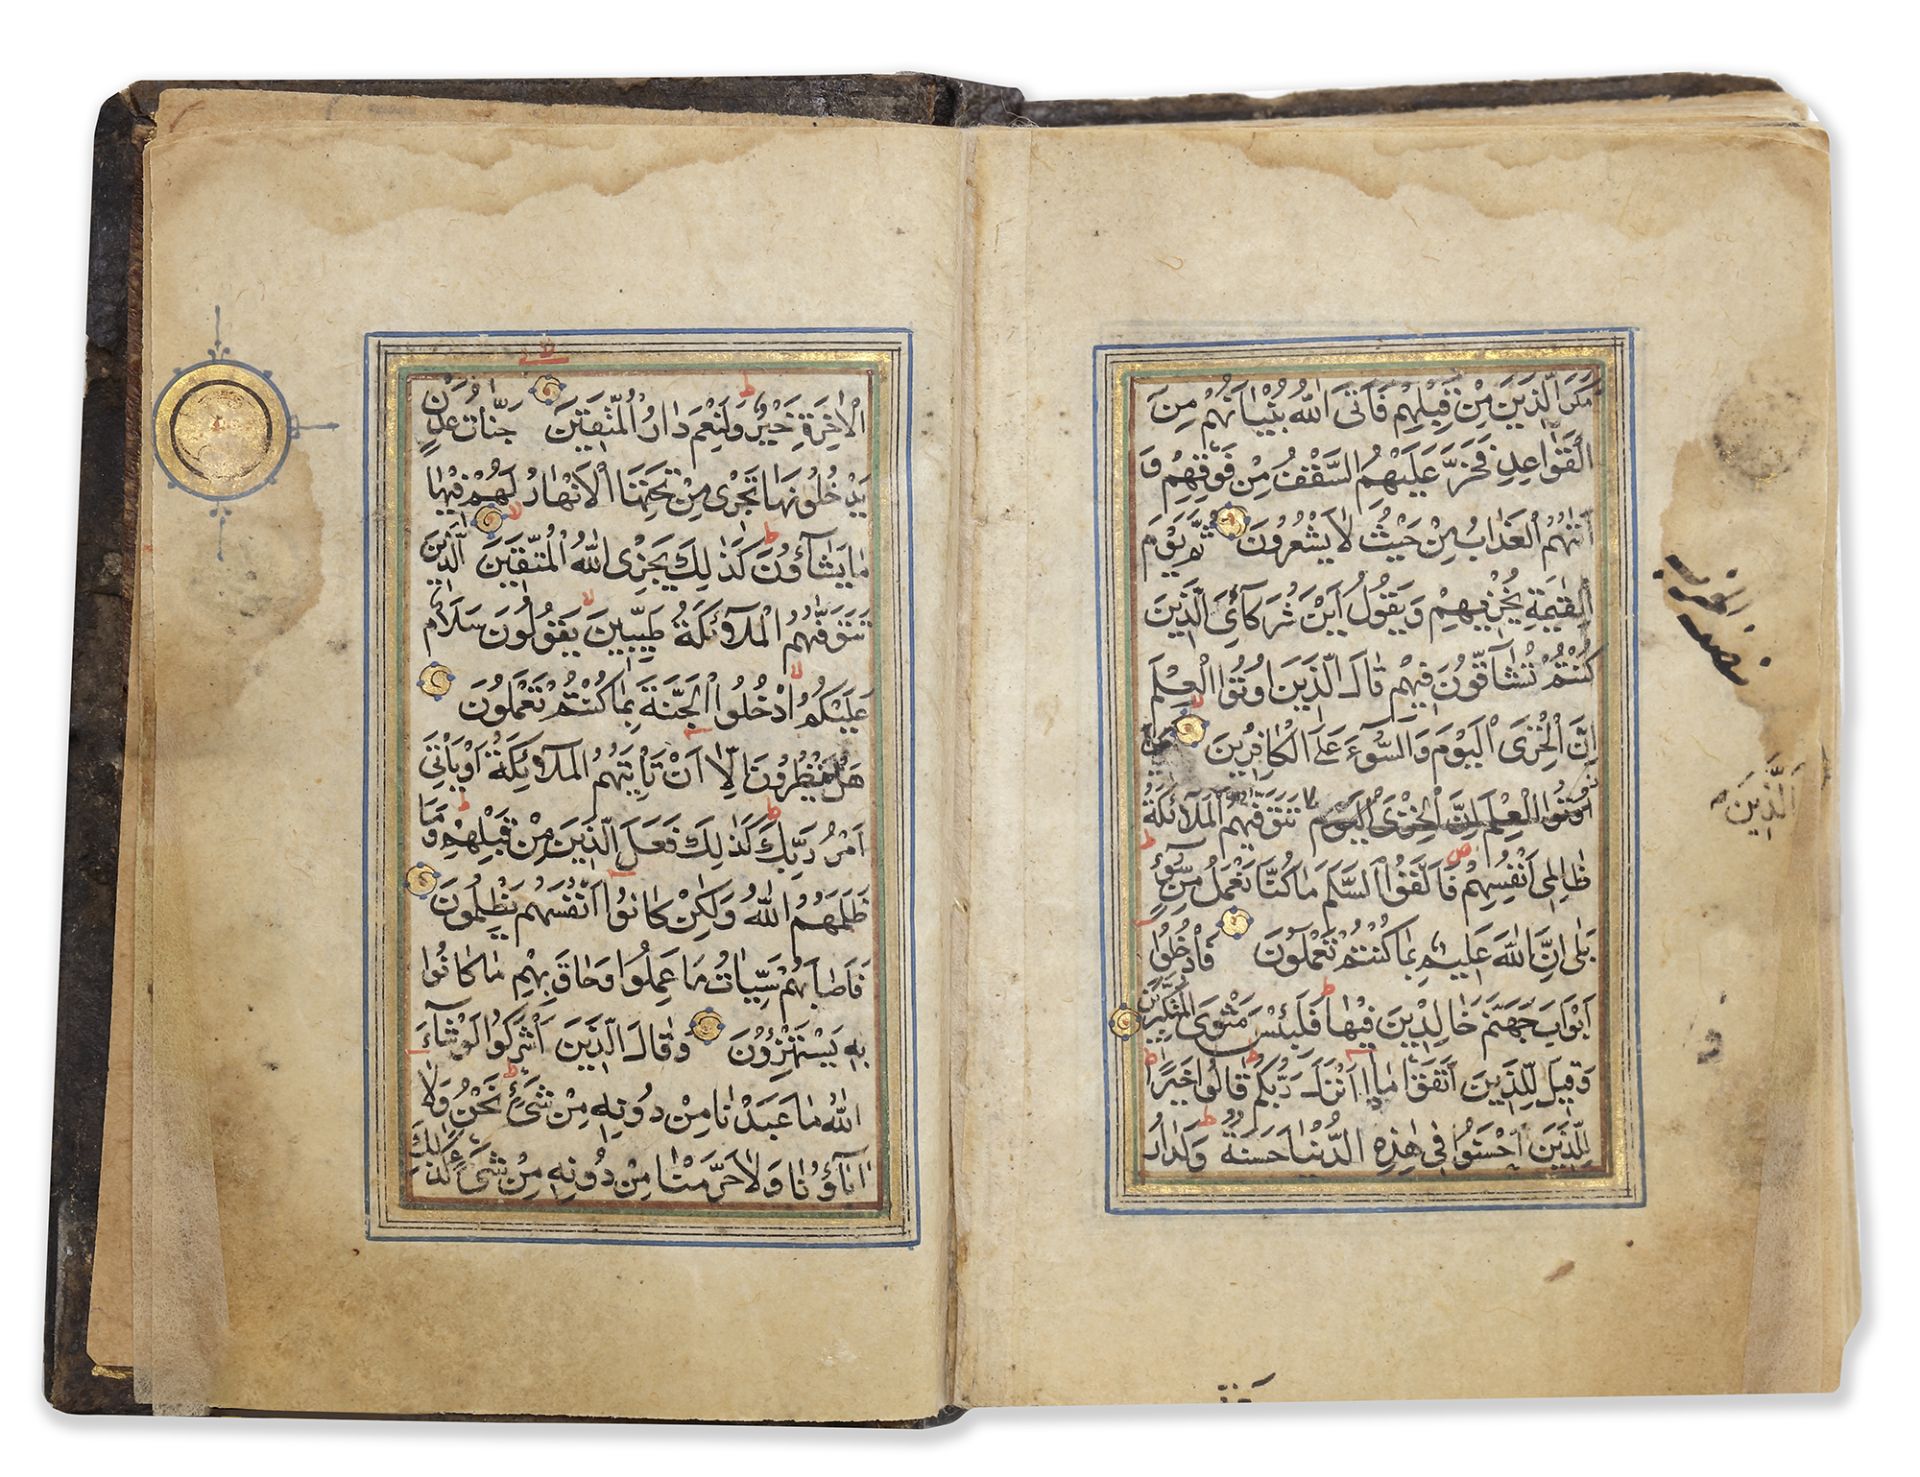 مَكَرَ الَّذِينَ مِنْ قَبْلِهِمْ فَاَتَى اللّٰهُ بُنْيَانَهُمْ مِنَ
الْقَوَاعِدِ فَخَرَّ عَلَيْهِمُ السَّقْفُ مِنْ فَوْقِهِمْ وَ
اَتٰىهُمُ الْعَذَابُ مِنْ حَيْثُ لَا يَشْعُرُونَ ثُمَّ يَوْمَ
الْقِيٰمَةِ يُخْزِيهِمْ وَيَقُولُ اَيْنَ شُرَكَآئِيَ الَّذِينَ
كُنْتُمْ تُشَآقُّونَ فِيهِمْ قَالَ الَّذِينَ اُوتُوا الْعِلْمَ
اِنَّ الْخِزْىَ الْيَوْمَ وَالسُّوءَ عَلَى الْكَافِرِينَ
اُوتُوا الْعِلْمَ اِنَّ الْخِزْىَ الْيَوْمَ تَتَوَفّٰيهُمُ الْمَلَآئِكَةُ
ظَالِمِى اَنْفُسِهِمْ فَاَلْقَوُا السَّلَمَ مَا كُنَّا نَعْمَلُ مِنْ سُوٓءٍ
بَلٰى اِنَّ اللّٰهَ عَلِيمٌ بِمَا كُنْتُمْ تَعْمَلُونَ فَادْخُلُوا
اَبْوَابَ جَهَنَّمَ خَالِدِينَ فِيهَا فَلَبِئْسَ مَثْوَى الْمُتَكَبِّرِينَ
وَقِيلَ لِلَّذِينَ اتَّقَوْا مَاذَا اَنْزَلَ رَبُّكُمْ قَالُوا خَيْرًا
لِلَّذِينَ اَحْسَنُوا فِى هٰذِهِ الدُّنْيَا حَسَنَةٌ وَلَدَارُ
الَّذِينَ
الْاٰخِرَةِ خَيْرٌ وَلَنِعْمَ دَارُ الْمُتَّقِينَ جَنَّاتُ عَدْنٍ
يَدْخُلُونَهَا تَجْرِى مِنْ تَحْتِهَا الْاَنْهَارُ لَهُمْ فِيهَا
مَا يَشَآؤُنَ كَذٰلِكَ يَجْزِى اللّٰهُ الْمُتَّقِينَ الَّذِينَ
تَتَوَفّٰيهُمُ الْمَلَآئِكَةُ طَيِّبِينَ يَقُولُونَ سَلَامٌ
عَلَيْكُمُ ادْخُلُوا الْجَنَّةَ بِمَا كُنْتُمْ تَعْمَلُونَ
هَلْ يَنْظُرُونَ اِلَّا اَنْ تَاْتِيَهُمُ الْمَلَآئِكَةُ اَوْ يَاْتِىَ
اَمْرُ رَبِّكَ كَذٰلِكَ فَعَلَ الَّذِينَ مِنْ قَبْلِهِمْ وَمَا
ظَلَمَهُمُ اللّٰهُ وَلٰكِنْ كَانُوا اَنْفُسَهُمْ يَظْلِمُونَ
فَاَصَابَهُمْ سَيِّئَاتُ مَا عَمِلُوا وَحَاقَ بِهِمْ مَا كَانُوا
بِهِ يَسْتَهْزِؤُنَ وَقَالَ الَّذِينَ اَشْرَكُوا لَوْ شَآءَ
اللّٰهُ مَا عَبَدْنَا مِنْ دُونِهِ مِنْ شَىْءٍ نَحْنُ وَلَا
اٰبَآؤُنَا وَلَا حَرَّمْنَا مِنْ دُونِهِ مِنْ شَىْءٍ كَذٰلِكَ